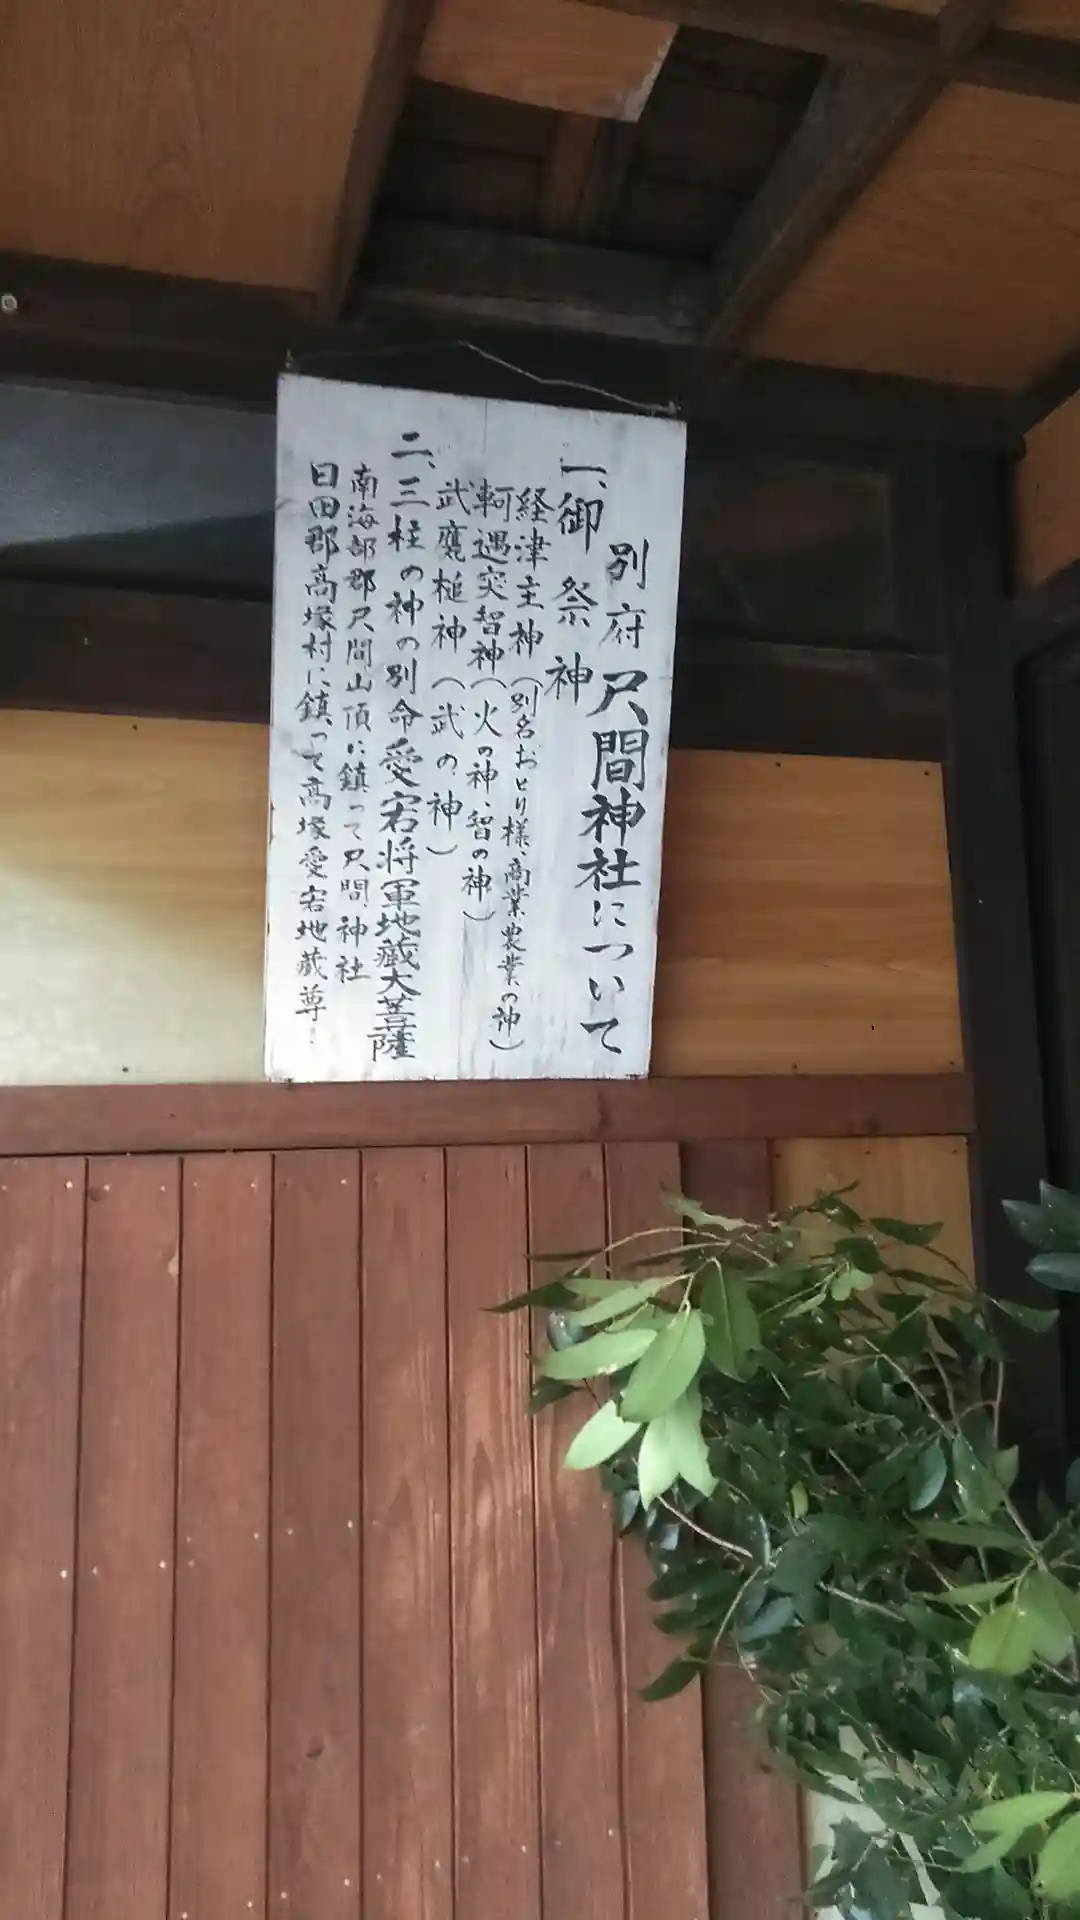 別府尺間神社について
一、御祭神
経津主神(別名おとり様、商業、農業、の神)
軻遇突智神(火の神、智の神)
武甕槌神(武の神)
二、三柱の神の別命愛宕将軍地蔵大菩薩
南海部郡尺間山頂に鎮って尺間神社
日田郡高塚村に鎮って高塚愛宕地蔵尊